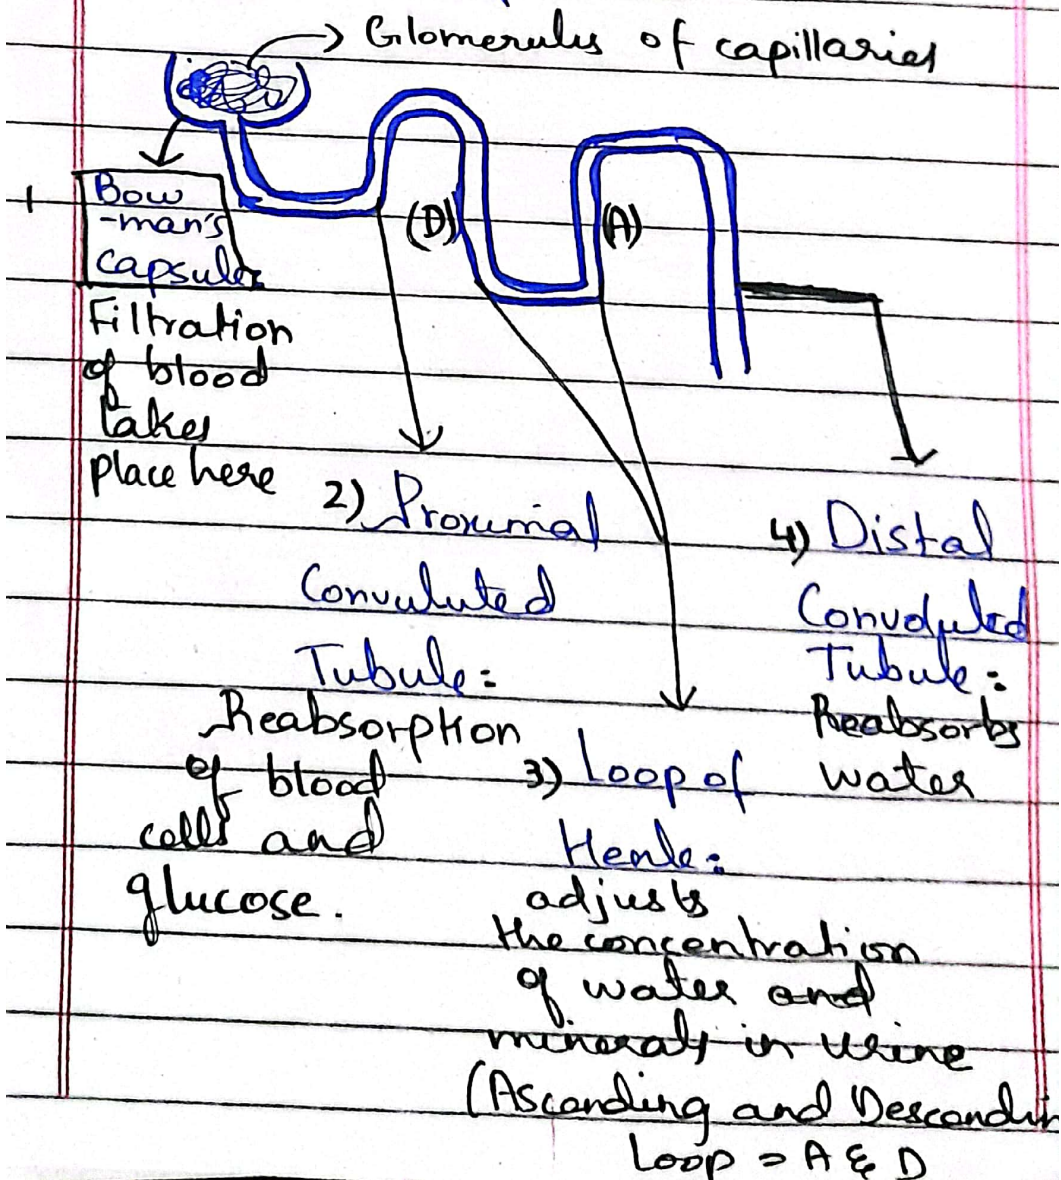 Glomerulus of capillaries
1
Bow
-man's
capsule:
Filtration
of blood
takes
place here
(D)
(A)
2) Proximal
Convuluted
Tubule:
Reabsorption
of blood
cells and
glucose.
3) Loop of
Henle:
adjusts
the concentration
of water and
minerals in urine
(Ascending and Descendin
Loop = A & D
4) Distal
Convoluted
Tubule:
Reabsorbs
water